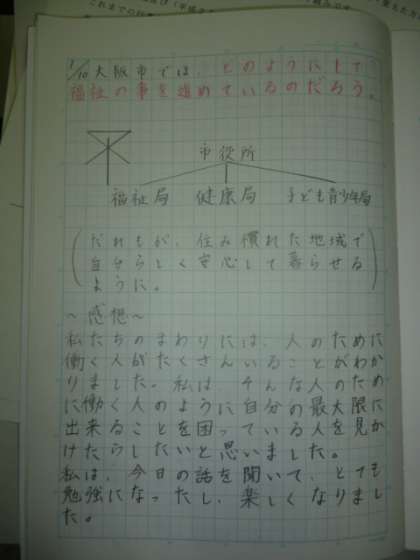 これまでの行
1/10 大阪市では、どのようにして
福祉の事を進めているのだろう。
市役所
福祉局 健康局 子ども青少年局
(だれもが、住み慣れた地域で
自分らしく安心して暮らせる
ように。)
~感想~
私たちのまわりには、人のために
働く人がたくさんいることがわか
りました。私は、そんな人のため
に働く人のように自分の最大限に
出来ることを困っている人を見か
けたらしたいと思いました。
私は、今日の話を聞いて、とても
勉強になったし、楽しくなりまし
た。